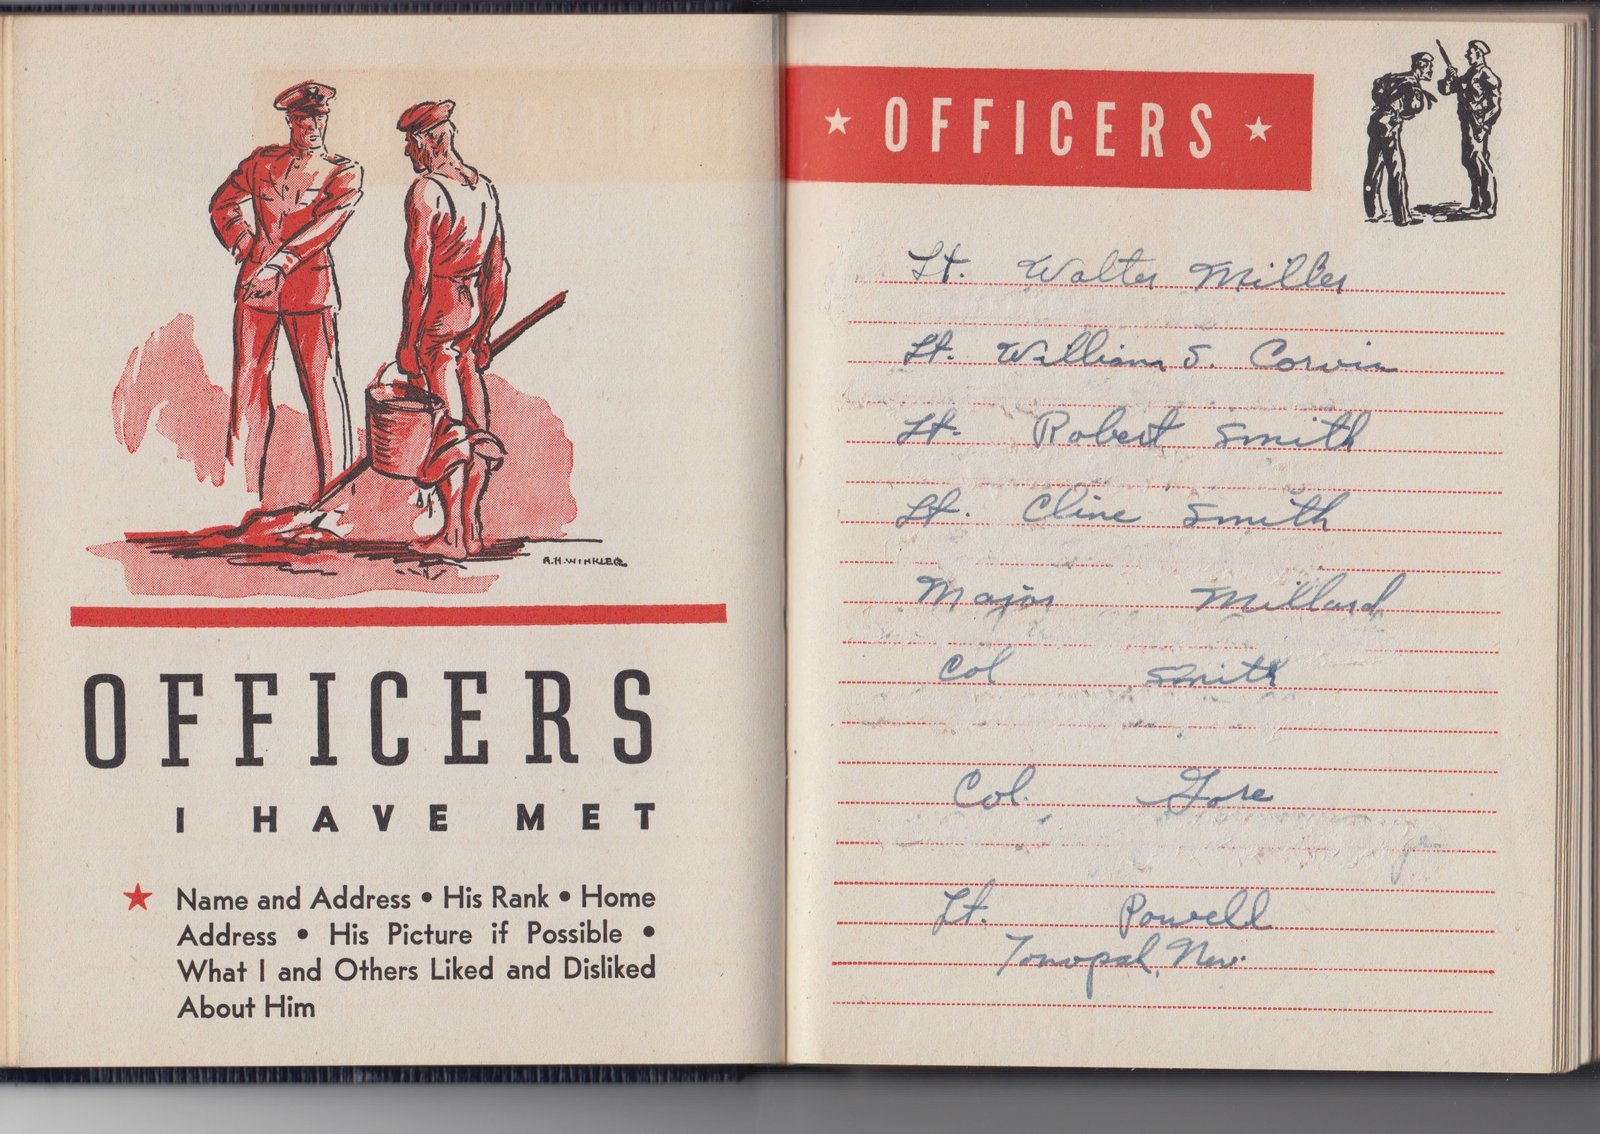 R.H. WINKLER
OFFICERS
I HAVE MET
★ Name and Address • His Rank • Home
Address • His Picture if Possible •
What I and Others Liked and Disliked
About Him
★ OFFICERS ★
Lt. Walter Miller
Lt. William S. Corvin
Lt. Robert Smith
Lt. Cline Smith
Major Millard
Col Smith
Col. Gore
Lt. Powell
Tonopah, Nev.